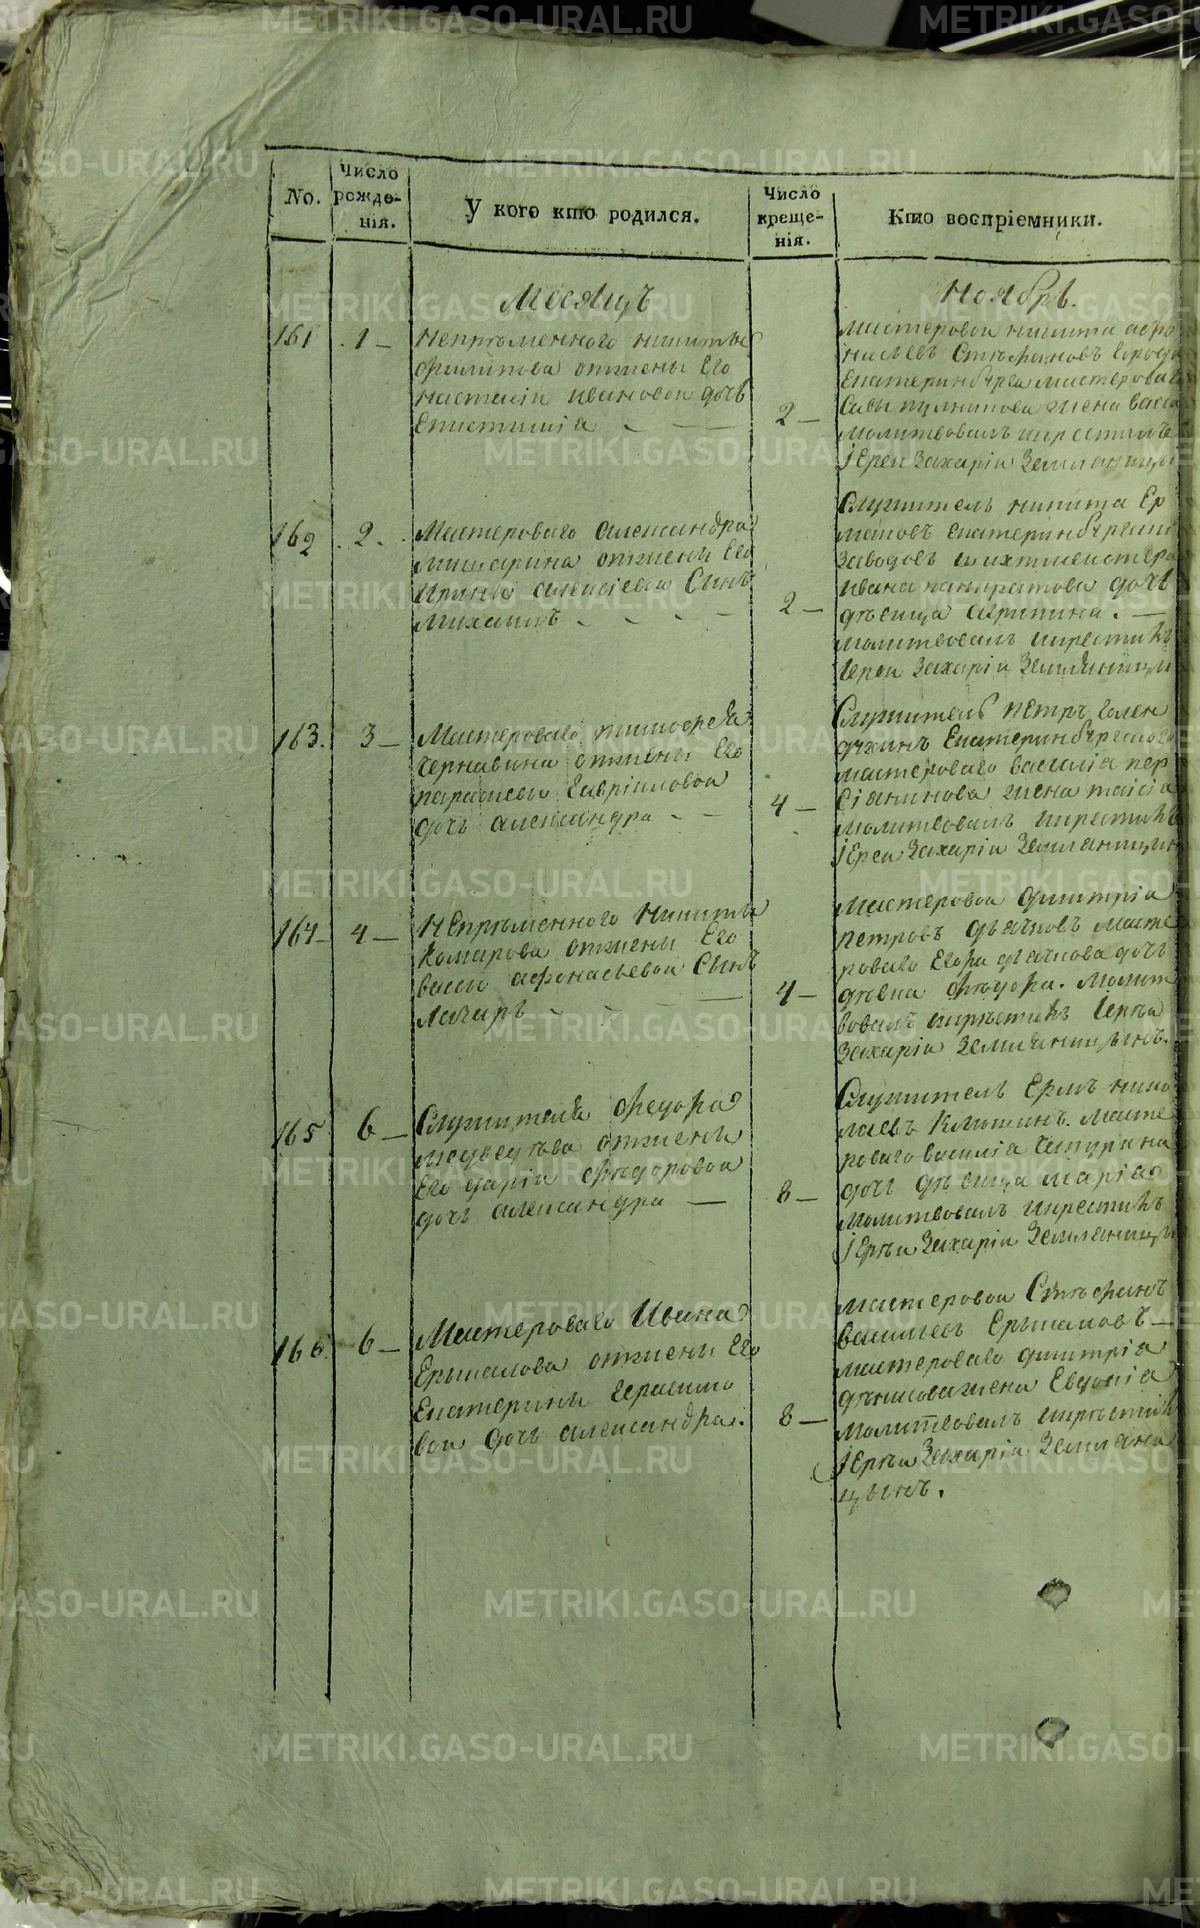 No.
Число рожде-
нія.
У кого кто родился.
Число
креще-
нія.
Кто воспріемники.
Месяцъ
Ноябрь.
161
1 –
Непременного никиты
филипова отжены Его
настасіи ивановои дочь
Епистимія
2 –
мастеровои никита афо
насьевъ Стефановъ города
Екатеринбурга мастероваго
Савы пулникова жена васса
молитвовалъ икрестилъ
іереи Захаріи Земляницы
162
2.
Мастероваго александра
мишарина отжены Его
ирины алексіевои Сынъ
михаилъ
2 –
Служитель никита Ер
маковъ Екатеринбургски
заводовъ шихтмеистера
ивана панкратова дочь
девица агрипина. –
молитвовалъ икрестилъ
іереи Захаріи Земляницы
163.
3 –
Мастероваго тимофея
чернавина отжены Его
парасковьи Гавріиловои
дочь александра
4 –
Служитель петръ Голен
духинъ Екатеринбургскаго
мастероваго василія пер
сіянинова жена таисія
молитвовалъ икрестилъ
іереи Захаріи Земляницын
164
4 –
Непременного Никиты
Комарова отжены Его
васы афонасьевои Сынъ
Лазарь
4 –
Мастеровои димитріи
петровъ дьячковъ масте
роваго Егора дьячкова дочь
девка федора. Молит
вовалъ икрестилъ іереи
Захаріи Земляницынъ.
165
6 –
Служителя федора
медведева отжены
Его даріи федоровои
дочь александра –
8 –
Служитель Ермъ нико
лаевъ Клюшинъ. масте
роваго василія Чепурина
дочь девица марія
молитвовалъ икрестилъ
іереи Захаріи Земляницы
166
6 –
Мастероваго Ивана
Ерыкалова отжены Его
Екатерины Герасимо
вои дочь александра.
8 –
мастеровои Стефанъ
васильевъ Ерыкаловъ –
мастероваго димитрія
денисова жена Евдокія
молитвовалъ икрестилъ
іереи Захаріи Земляни
цынъ.
METRIKI.GASO-URAL.RU